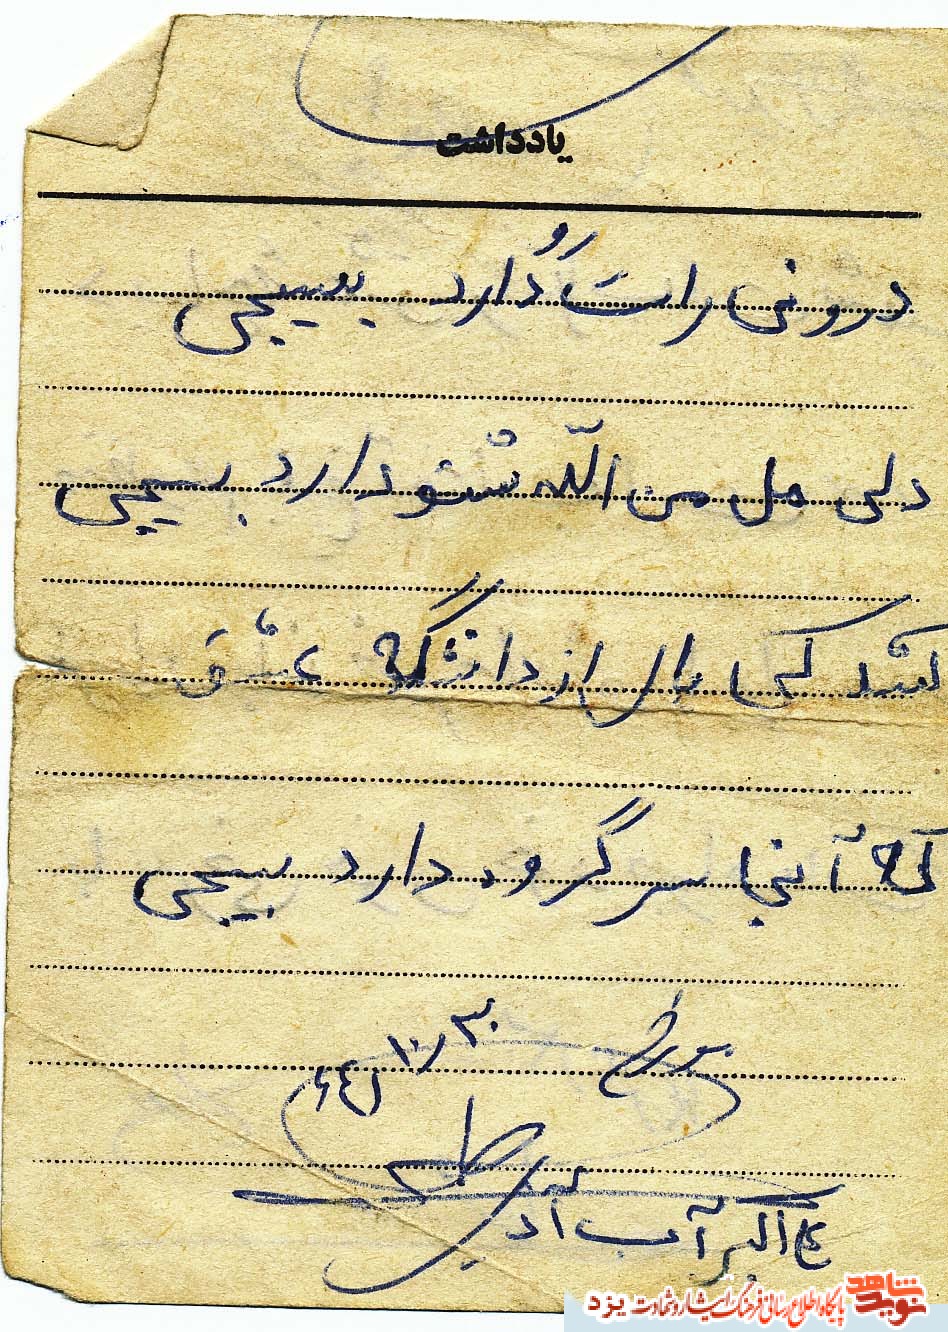 یادداشت
درونی راست رو دارد بسیجی
دلی هل من الله شنو دارد بسیجی
کشد کی بال از دانشگه عشق
که آنجا سر گرو دارد بسیجی
مورخ ۳۰ر۱۰ر۶۴
اکبر آب
نوید شاهد
پایگاه اطلاع رسانی فرهنگ ایثار و شهادت یزد